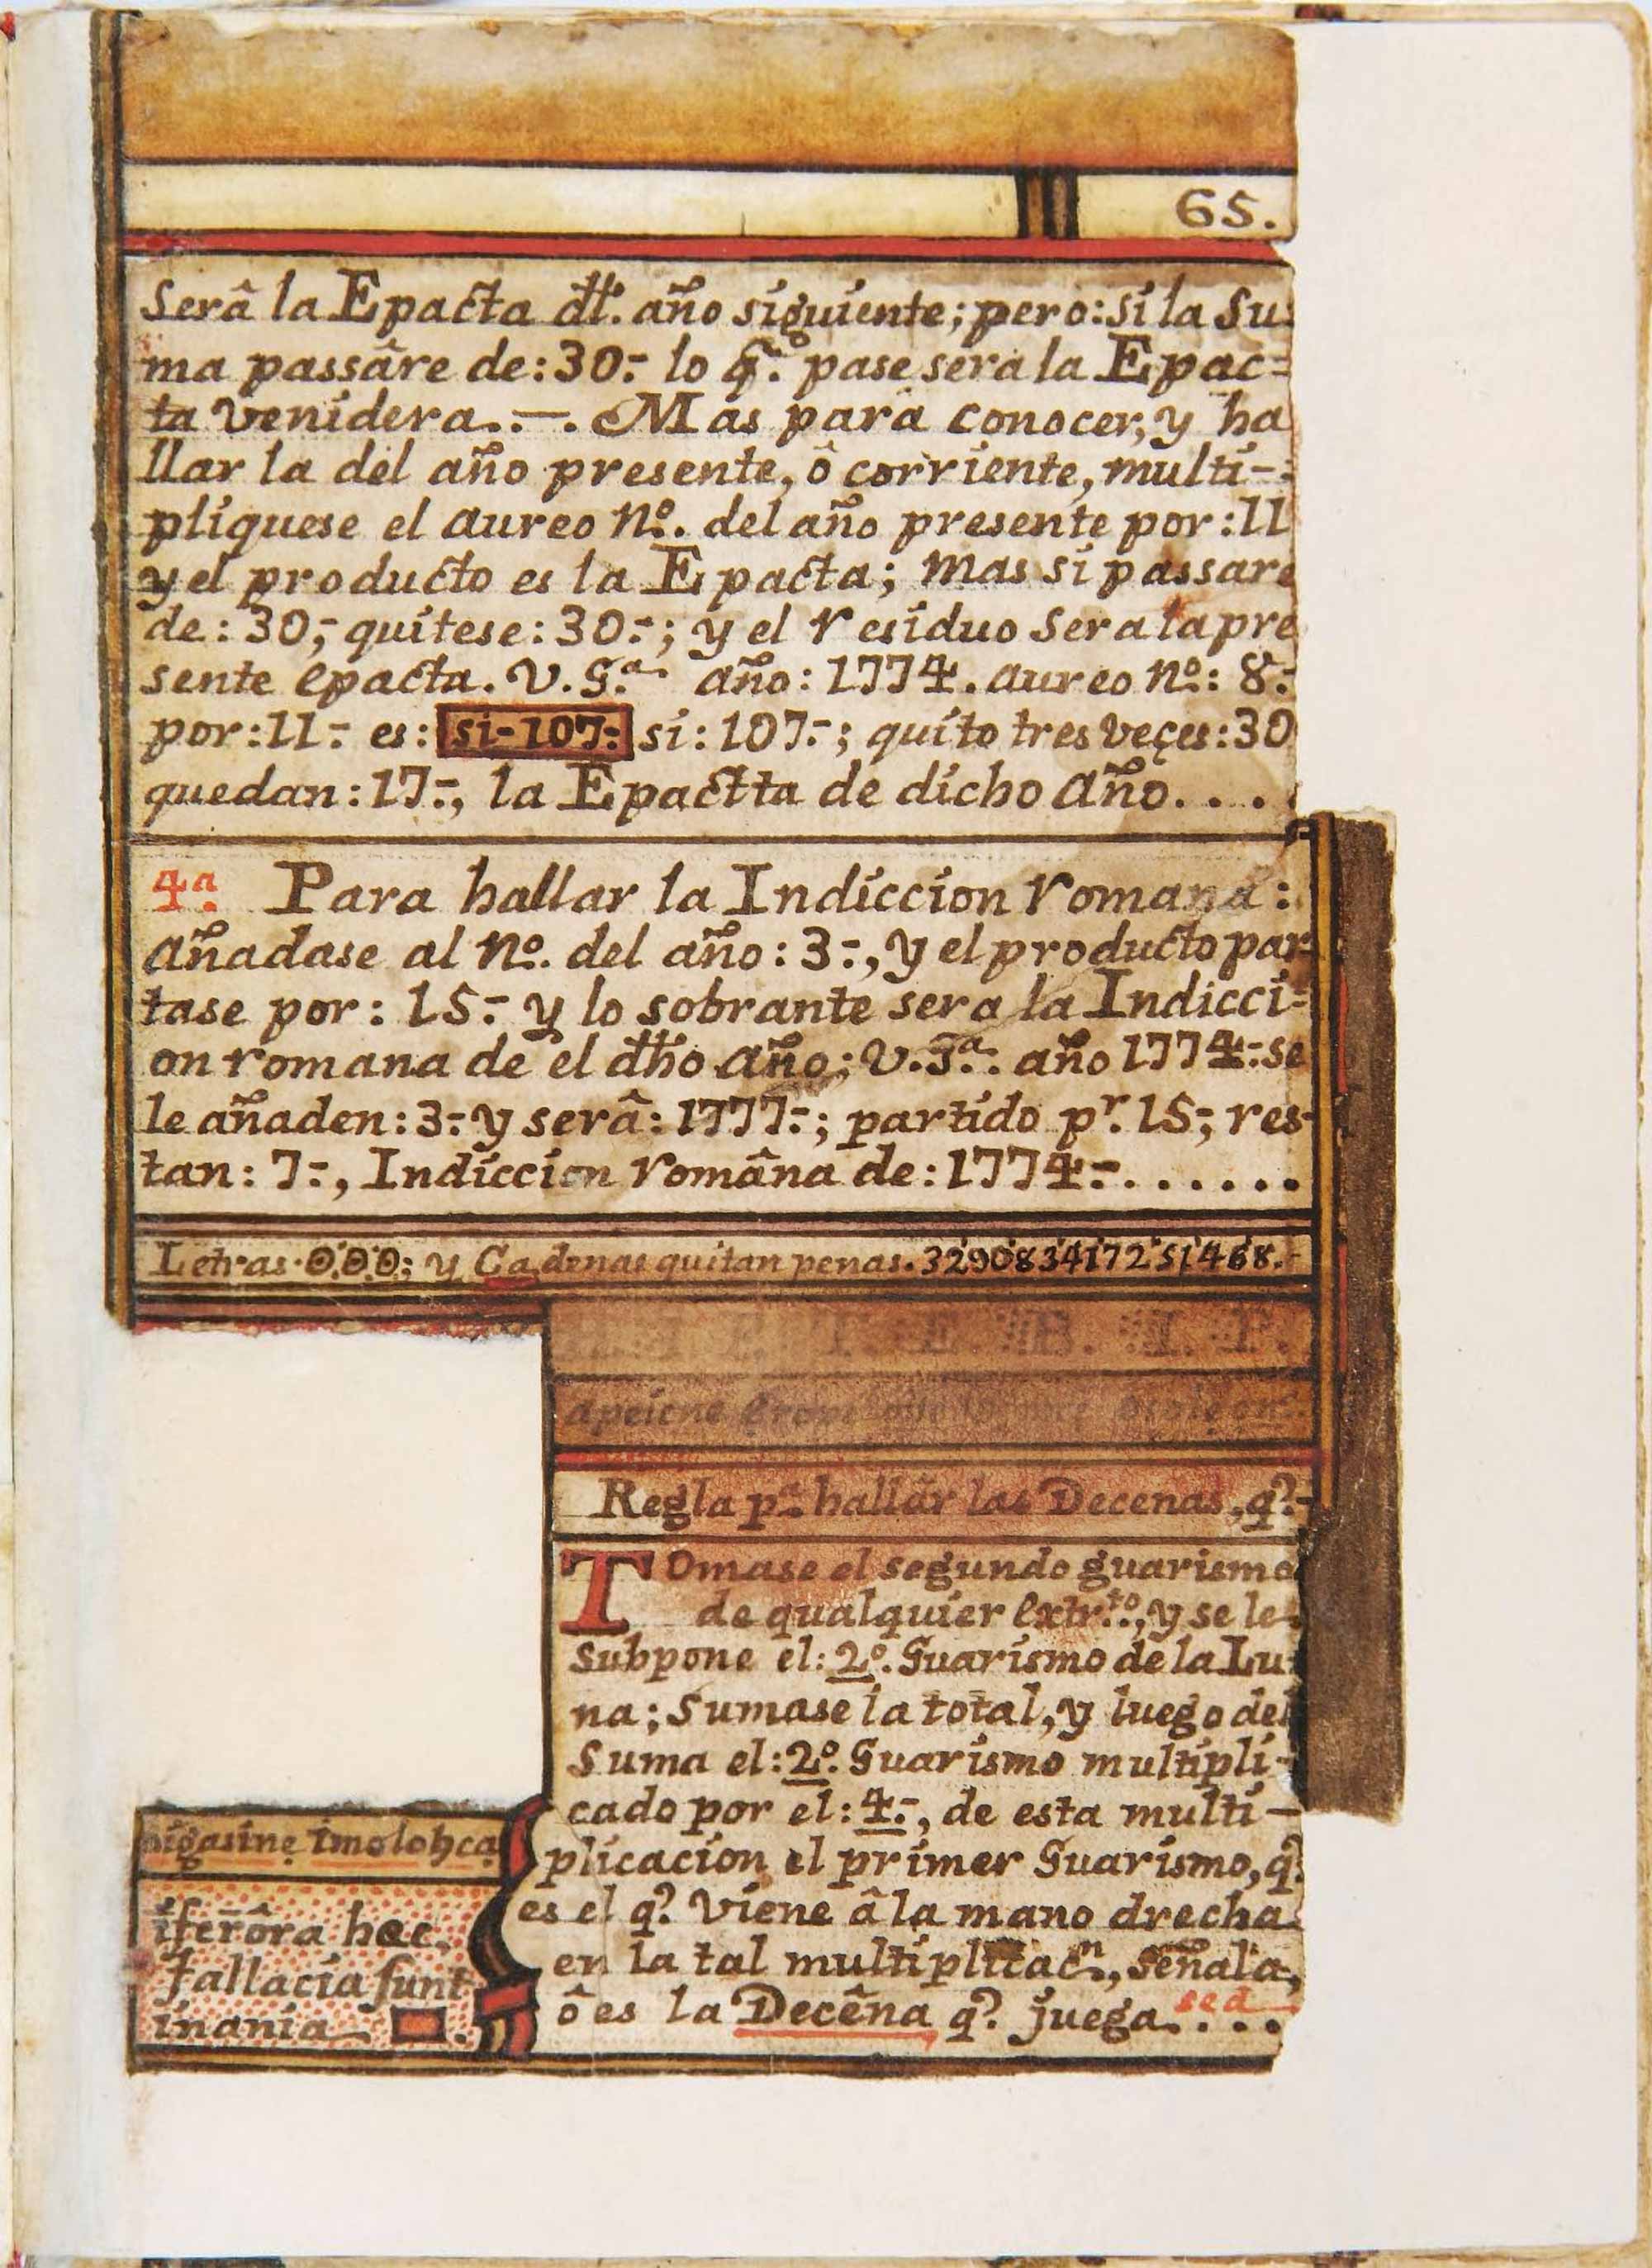 65.
Serâ la Epacta dħ. año siguiente; pero: si la Su:
ma passâre de: 30:- lo q.º pase sera la Epac=
ta venidera..—. Mas para conocer, y ha
llar la del año presente, ô corriente, multi-:
pliquese el aureo Nº. del año presente por: 11
y el producto es la Epacta; mas si passare
de: 30;- quitese: 30:-; y el residuo Sera la pre
sente epacta. V.G.ª año: 1774. aureo Nº: 8:-
por: 11:- es: si-107:- si: 107:-; quito tres veçes: 30
quedan: 17:-, la Epactta de dicho Año. . . .
4ª. Para hallar la Indiccion romana:
Añadase al Nº. del año: 3:-, y el producto par-
tase por: 15:- y lo sobrante sera la Indicci=
on romana de el dħo Año: V.Gª.: año 1774:- se
le añaden: 3:- y serâ: 1777:-; partido pr. 15;- res-
tan: 7:-, Indiccion româna de: 1774:-. . . . . . .
Letras. ; y Cadenas quitan penas. 329083417251468.-
Regla pª. hallâr las Decenas, q?-
TOmase el segundo guarismo
de qualquier extr.to., y se le
subpone el: 2º. Guarismo de la Lu:
na; Sumase la total, y luego del
Suma el: 2º. Guarismo multipli-
cado por el: 4:-, de esta multi-
plicacion el primer Guarismo, q?
es el q? viene â la mano drecha
en la tal multiplicacn., señala,
ô es la Decêna q? juega. . . . sed
nigasine imolohca
iferôra hac.
fallacia sunt
inania